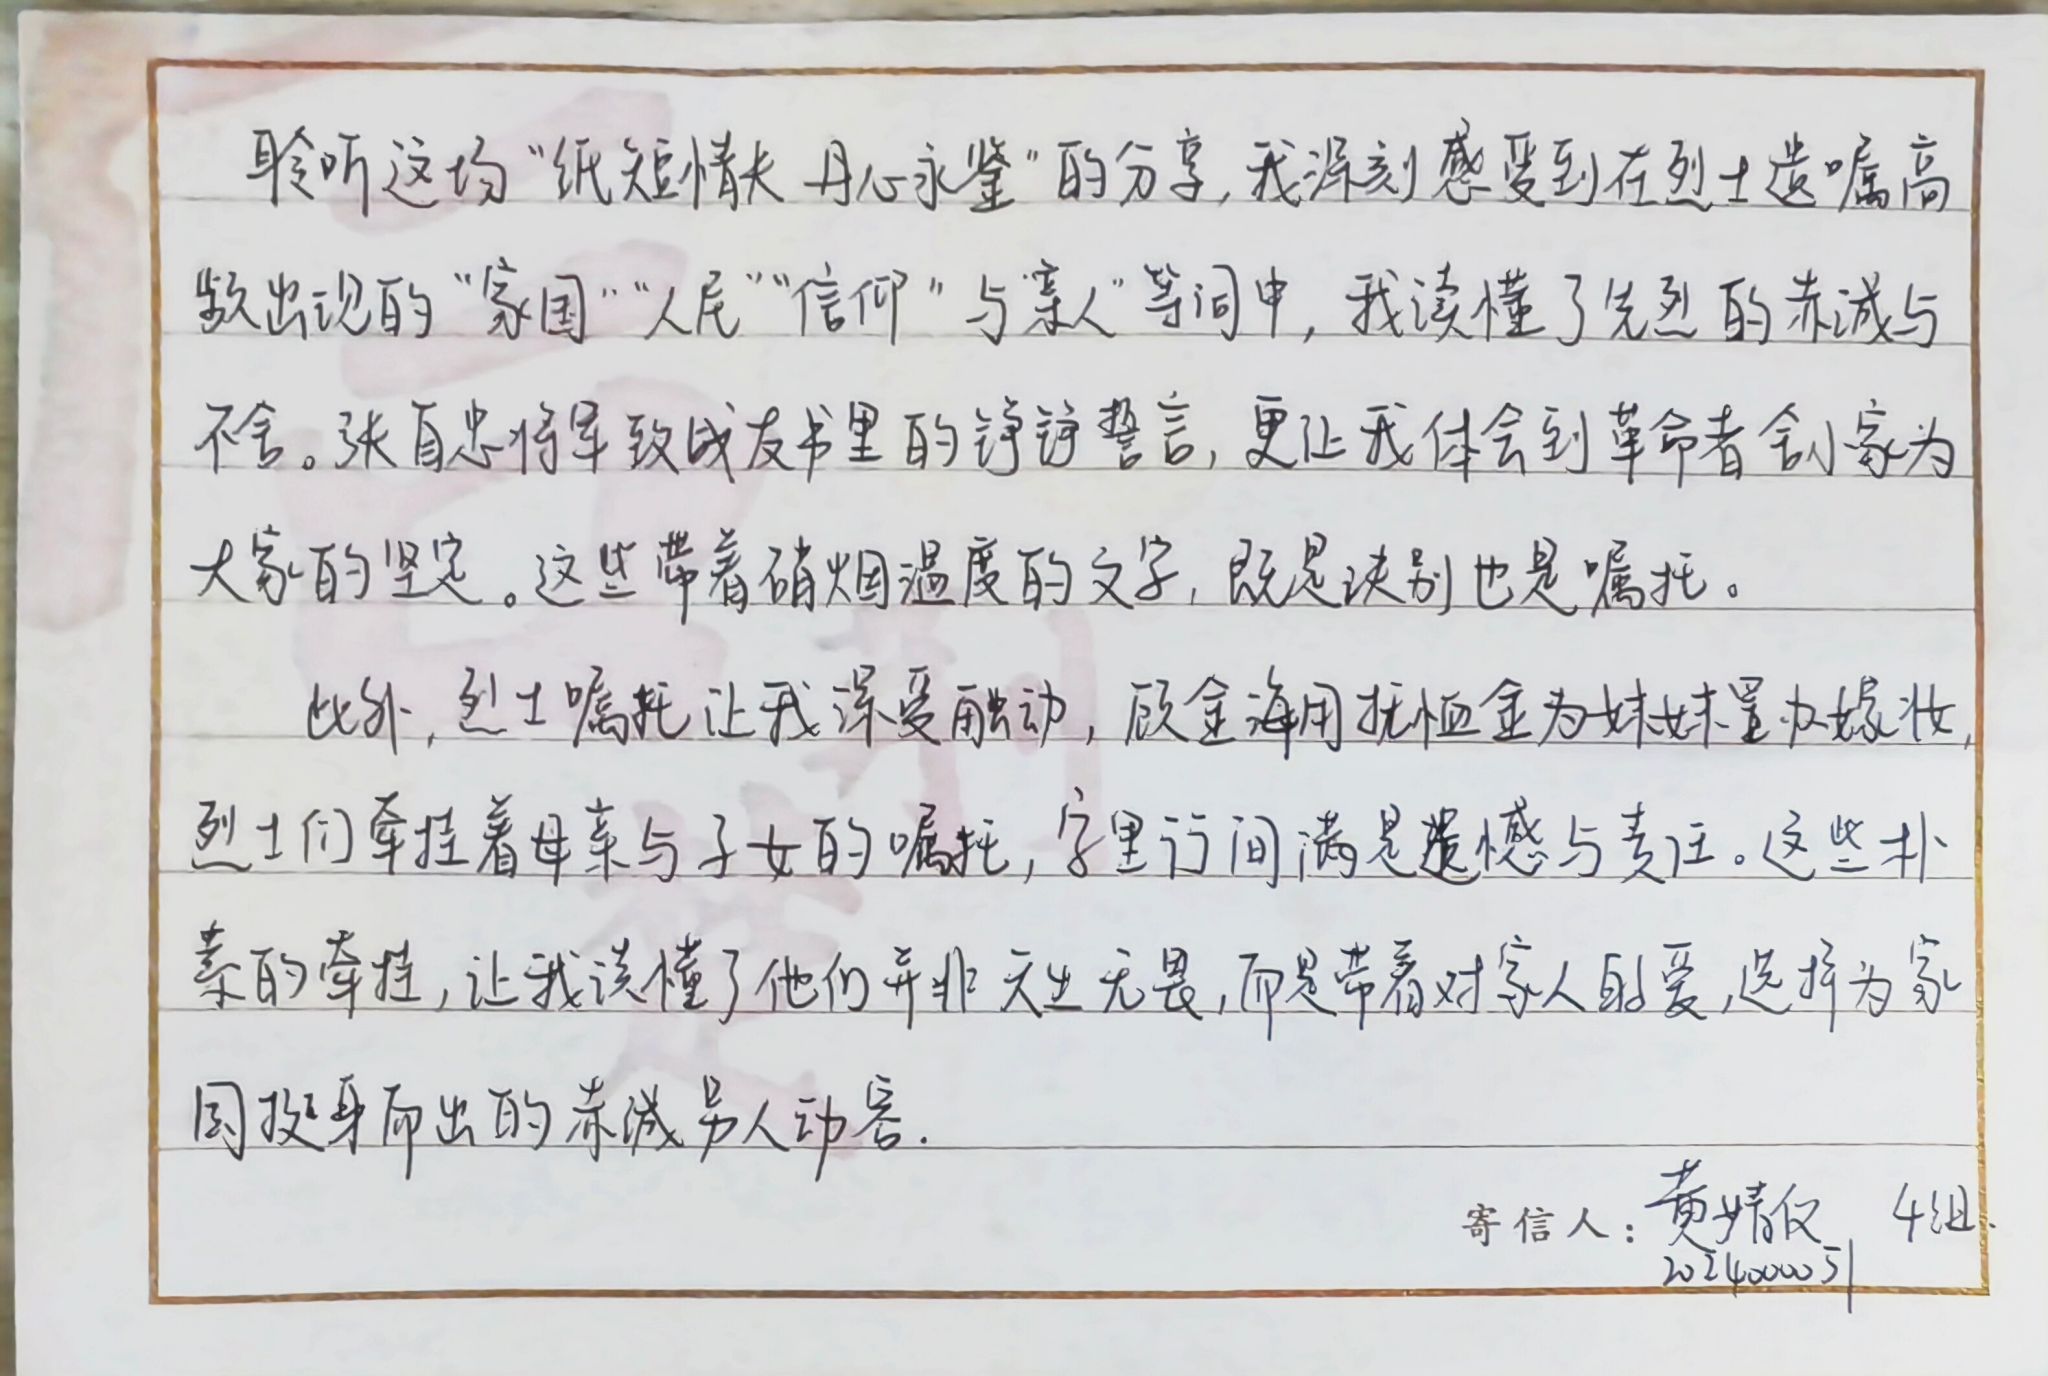 聆听这场“纸短情长 丹心永鉴”的分享,我深刻感受到在烈士遗嘱高
频出现的“家国”“人民”“信仰”与“亲人”等词中,我读懂了先烈的赤诚与
不舍。张自忠将军致战友书里的铮铮誓言,更让我体会到革命者舍小家为
大家的坚定。这些带着硝烟温度的文字,既是诀别也是嘱托。
此外,烈士嘱托让我深受触动,顾金海用抚恤金为妹妹置办嫁妆,
烈士们牵挂着母亲与子女的嘱托,字里行间满是遗憾与责任。这些朴
素的牵挂,让我读懂了他们并非天生无畏,而是带着对家人的爱,选择为家
国挺身而出的赤诚另人动容.
寄信人:黄婧仪 4组.
2024000051
荆楚